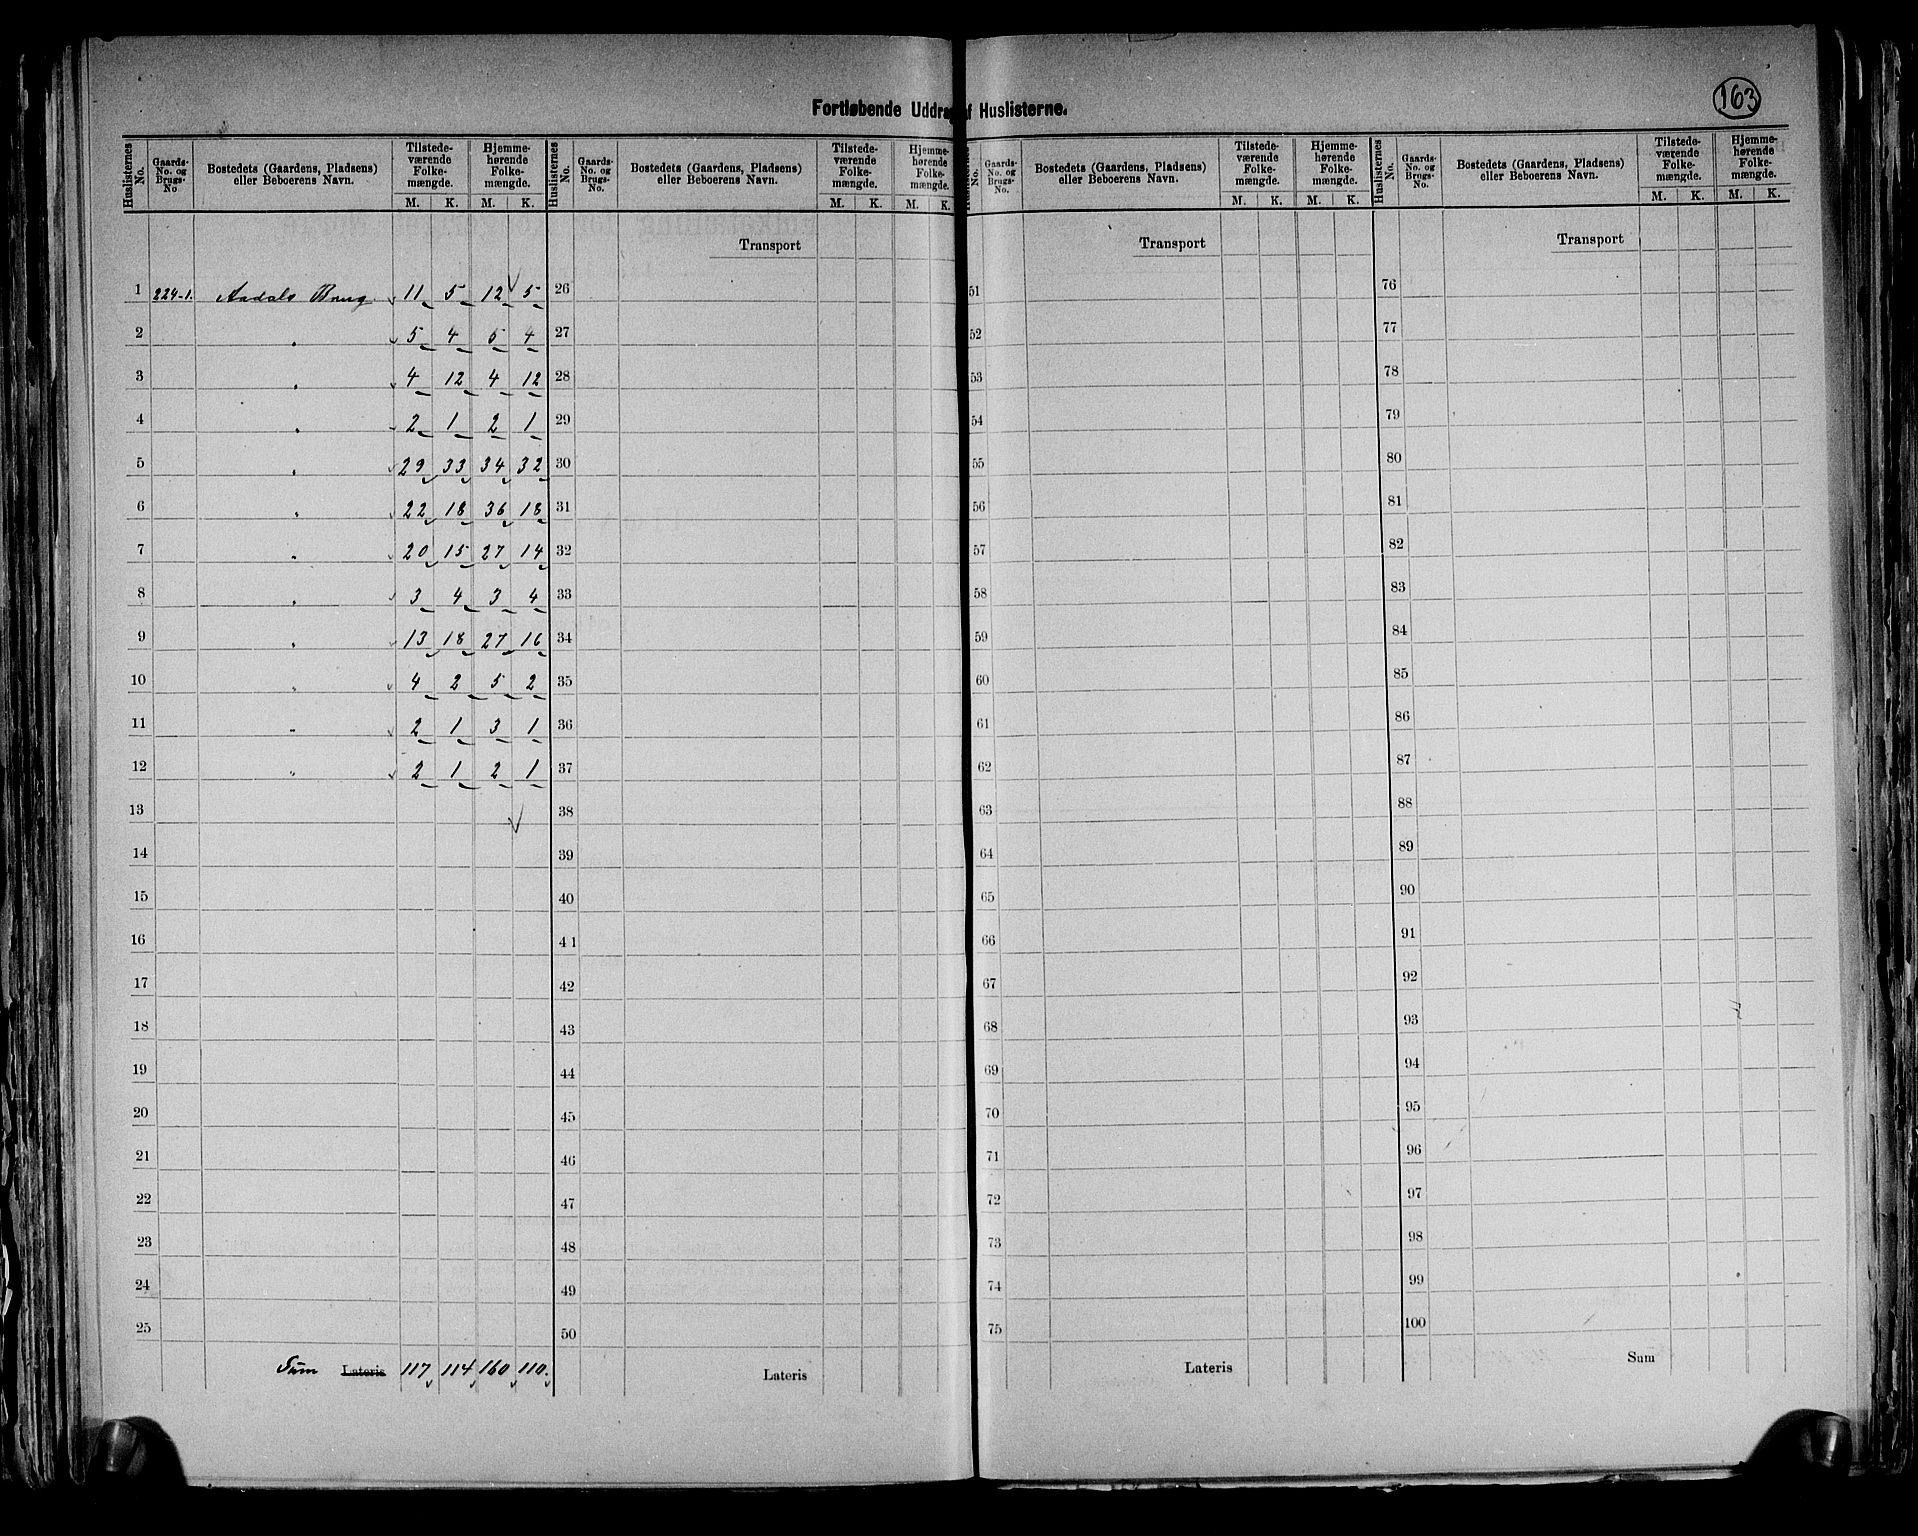 163
Fortløbende Uddrag af Huslisterne.
Huslisternes No. | Gaards-No. og Brugs-No | Bostedets (Gaardens, Pladsens) eller Beboerens Navn. | Tilstede-værende Folke-mængde. M. K. | Hjemme-hørende Folke-mængde. M. K.
1 224-1. Aadals Brug. 11 5 12 5
2 " 5 4 5 4
3 " 4 12 4 12
4 " 2 1 2 1
5 " 29 33 34 32
6 " 22 18 36 18
7 " 20 15 27 14
8 " 3 4 3 4
9 " 13 18 27 16
10 " 4 2 5 2
11 " 2 1 3 1
12 " 2 1 2 1
13
14
15
16
17
18
19
20
21
22
23
24
25
Sum Lateris 117 114 160 110.
Huslisternes No. | Gaards-No. og Brugs-No. | Bostedets (Gaardens, Pladsens) eller Beboerens Navn. | Tilstede-værende Folke-mængde. M. K. | Hjemme-hørende Folke-mængde. M. K.
Transport
26
27
28
29
30
31
32
33
34
35
36
37
38
39
40
41
42
43
44
45
46
47
48
49
50
Lateris
Huslisternes No. | Gaards-No. og Brugs-No. | Bostedets (Gaardens, Pladsens) eller Beboerens Navn. | Tilstede-værende Folke-mængde. M. K. | Hjemme-hørende Folke-mængde. M. K.
Transport
51
52
53
54
55
56
57
58
59
60
61
62
63
64
65
66
67
68
69
70
71
72
73
74
75
Lateris
Huslisternes No. | Gaards-No. og Brugs-No. | Bostedets (Gaardens, Pladsens) eller Beboerens Navn. | Tilstede-værende Folke-mængde. M. K. | Hjemme-hørende Folke-mængde. M. K.
Transport
76
77
78
79
80
81
82
83
84
85
86
87
88
89
90
91
92
93
94
95
96
97
98
99
100
Sum